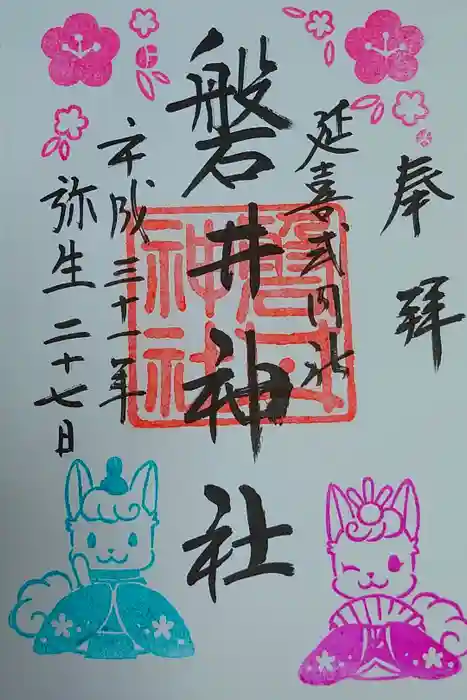 奉拝
延喜式内社
磐井神社
平成三十一年
弥生二十七日
磐井神社